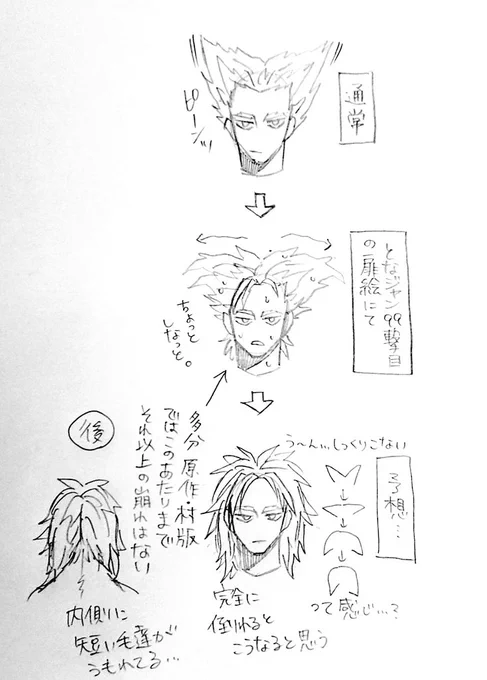 通常
ピーンッ
となジャン99撃目
の扉絵にて
ちょっと
しなっと。
多分 原作・村版
ではこのあたりまで
それ以上の崩れはない
後
う〜ん…しっくりこない
予想…
完全に
倒れると
こうなると思う
って感じ…?
内側に
短い毛達が
うもれてる…